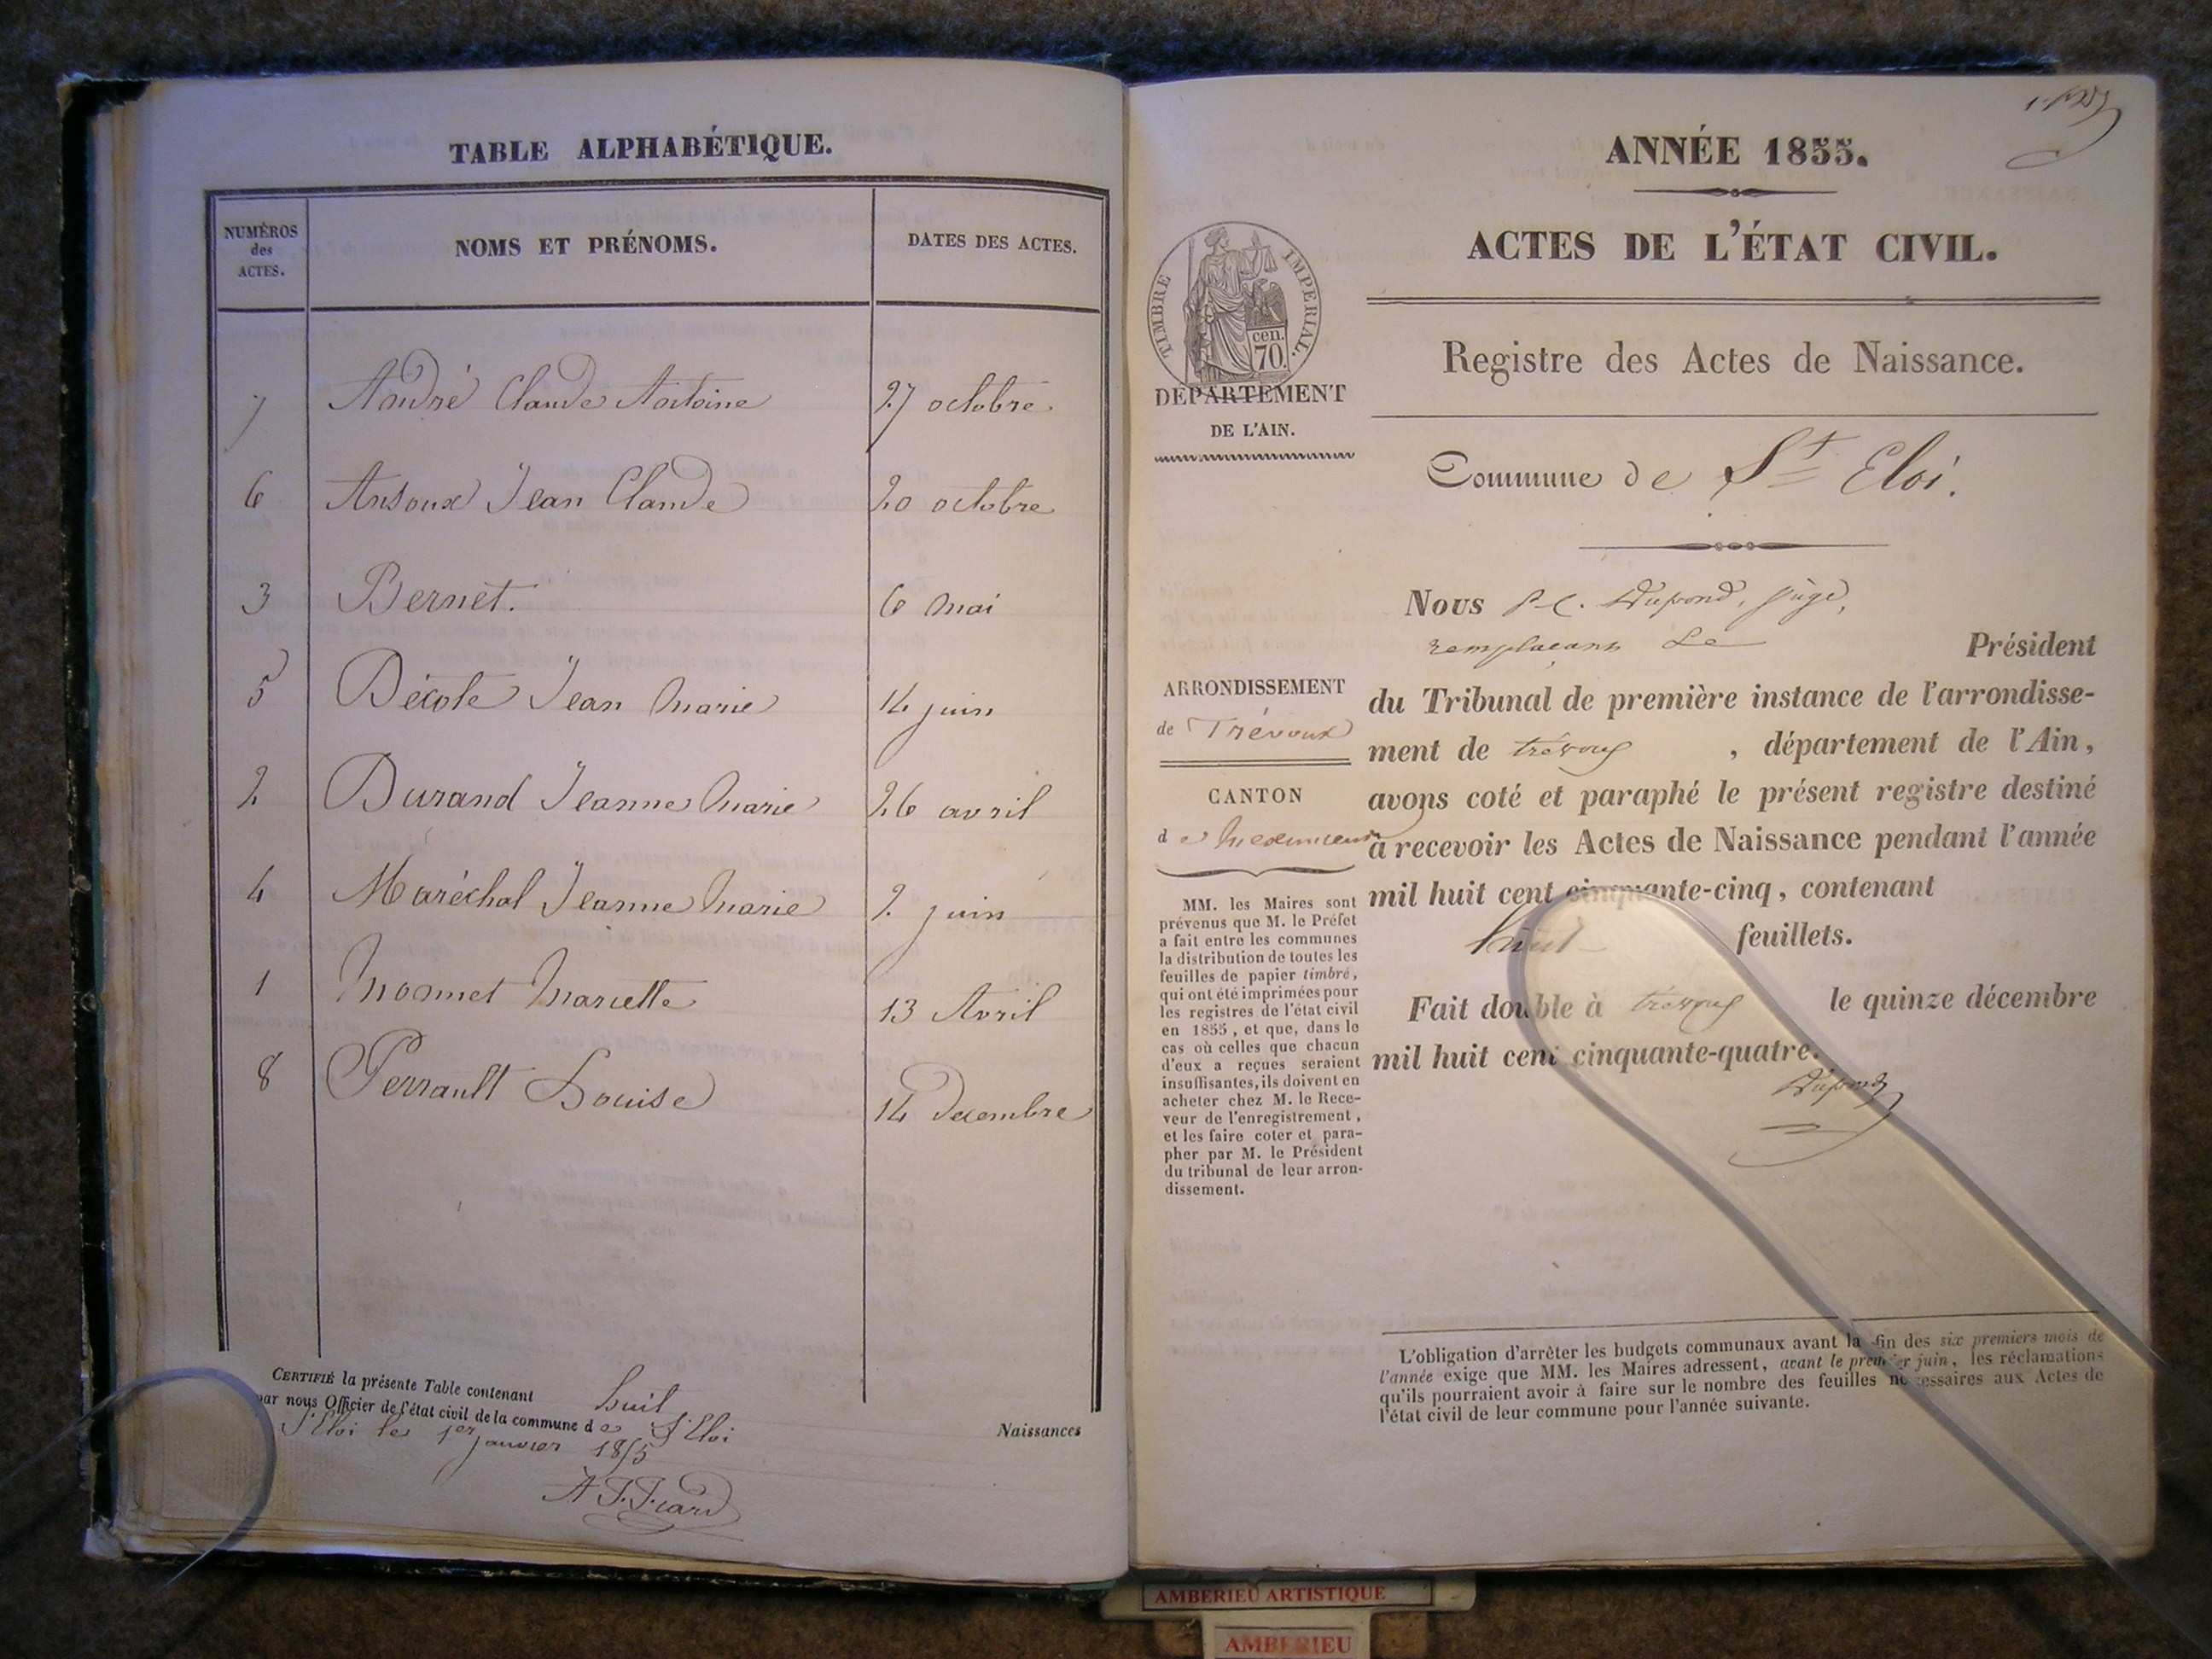 TABLE ALPHABÉTIQUE.
NUMÉROS des ACTES.
NOMS ET PRÉNOMS.
DATES DES ACTES.
7 André Claude Antoine 27 octobre
6 Ansoux Jean Claude 20 octobre
3 Bernet. 6 Mai
5 Décote Jean Marie 14 juin
2 Durand Jeanne Marie 26 avril
4 Maréchal Jeanne Marie 2 juin
1 Monnet Mariette 13 Avril
8 Perrault Louise 14 Decembre
CERTIFIÉ la présente Table contenant huit
par nous Officier de l'état civil de la commune de St Eloi
St Eloi le 1er janvier 1855
Naissances
ANNÉE 1855.
ACTES DE L'ÉTAT CIVIL.
TIMBRE IMPERIAL.
cen.
70.
DÉPARTEMENT
DE L'AIN.
Registre des Actes de Naissance.
Commune de St Eloi.
Nous P-C. Dupond, juge,
remplaçant Le Président
du Tribunal de première instance de l'arrondisse-
ment de trévoux , département de l'Ain,
avons coté et paraphé le présent registre destiné
à recevoir les Actes de Naissance pendant l'année
mil huit cent cinquante-cinq, contenant
huit feuillets.
Fait double à trévoux le quinze décembre
mil huit cent cinquante-quatre.
Dupond
ARRONDISSEMENT
de Trévoux
CANTON
de
MM. les Maires sont
prévenus que M. le Préfet
a fait entre les communes
la distribution de toutes les
feuilles de papier timbré,
qui ont été imprimées pour
les registres de l'état civil
en 1855, et que, dans le
cas où celles que chacun
d'eux a reçues seraient
insuffisantes, ils doivent en
acheter chez M. le Rece-
veur de l'enregistrement,
et les faire coter et para-
pher par M. le Président
du tribunal de leur arron-
dissement.
L'obligation d'arrêter les budgets communaux avant la fin des six premiers mois de
l'année exige que MM. les Maires adressent, avant le premier juin, les réclamations
qu'ils pourraient avoir à faire sur le nombre des feuilles nécessaires aux Actes de
l'état civil de leur commune pour l'année suivante.
AMBERIEU ARTISTIQUE
AMBERIEU